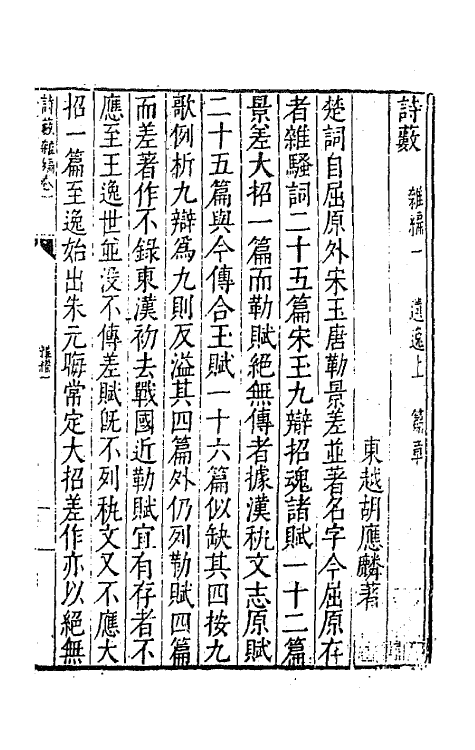 詩藪 雜編一 遺逸上 篇章
東越胡應麟著
楚詞自屈原外宋玉唐勒景差並著名字今屈原存
者離騷詞二十五篇宋玉九辯招魂諸賦一十二篇
景差大招一篇而勒賦絕無傳者據漢秇文志原賦
二十五篇與今傳合王賦一十六篇似缺其四按九
歌例析九辯爲九則反溢其四篇外仍列勒賦四篇
而差著作不錄東漢初去戰國近勒賦宜有存者不
應至王逸世並没不傳差賦旣不列秇文又不應大
招一篇至逸始出朱元晦常定大招差作亦以絕無
詩藪雜編卷一